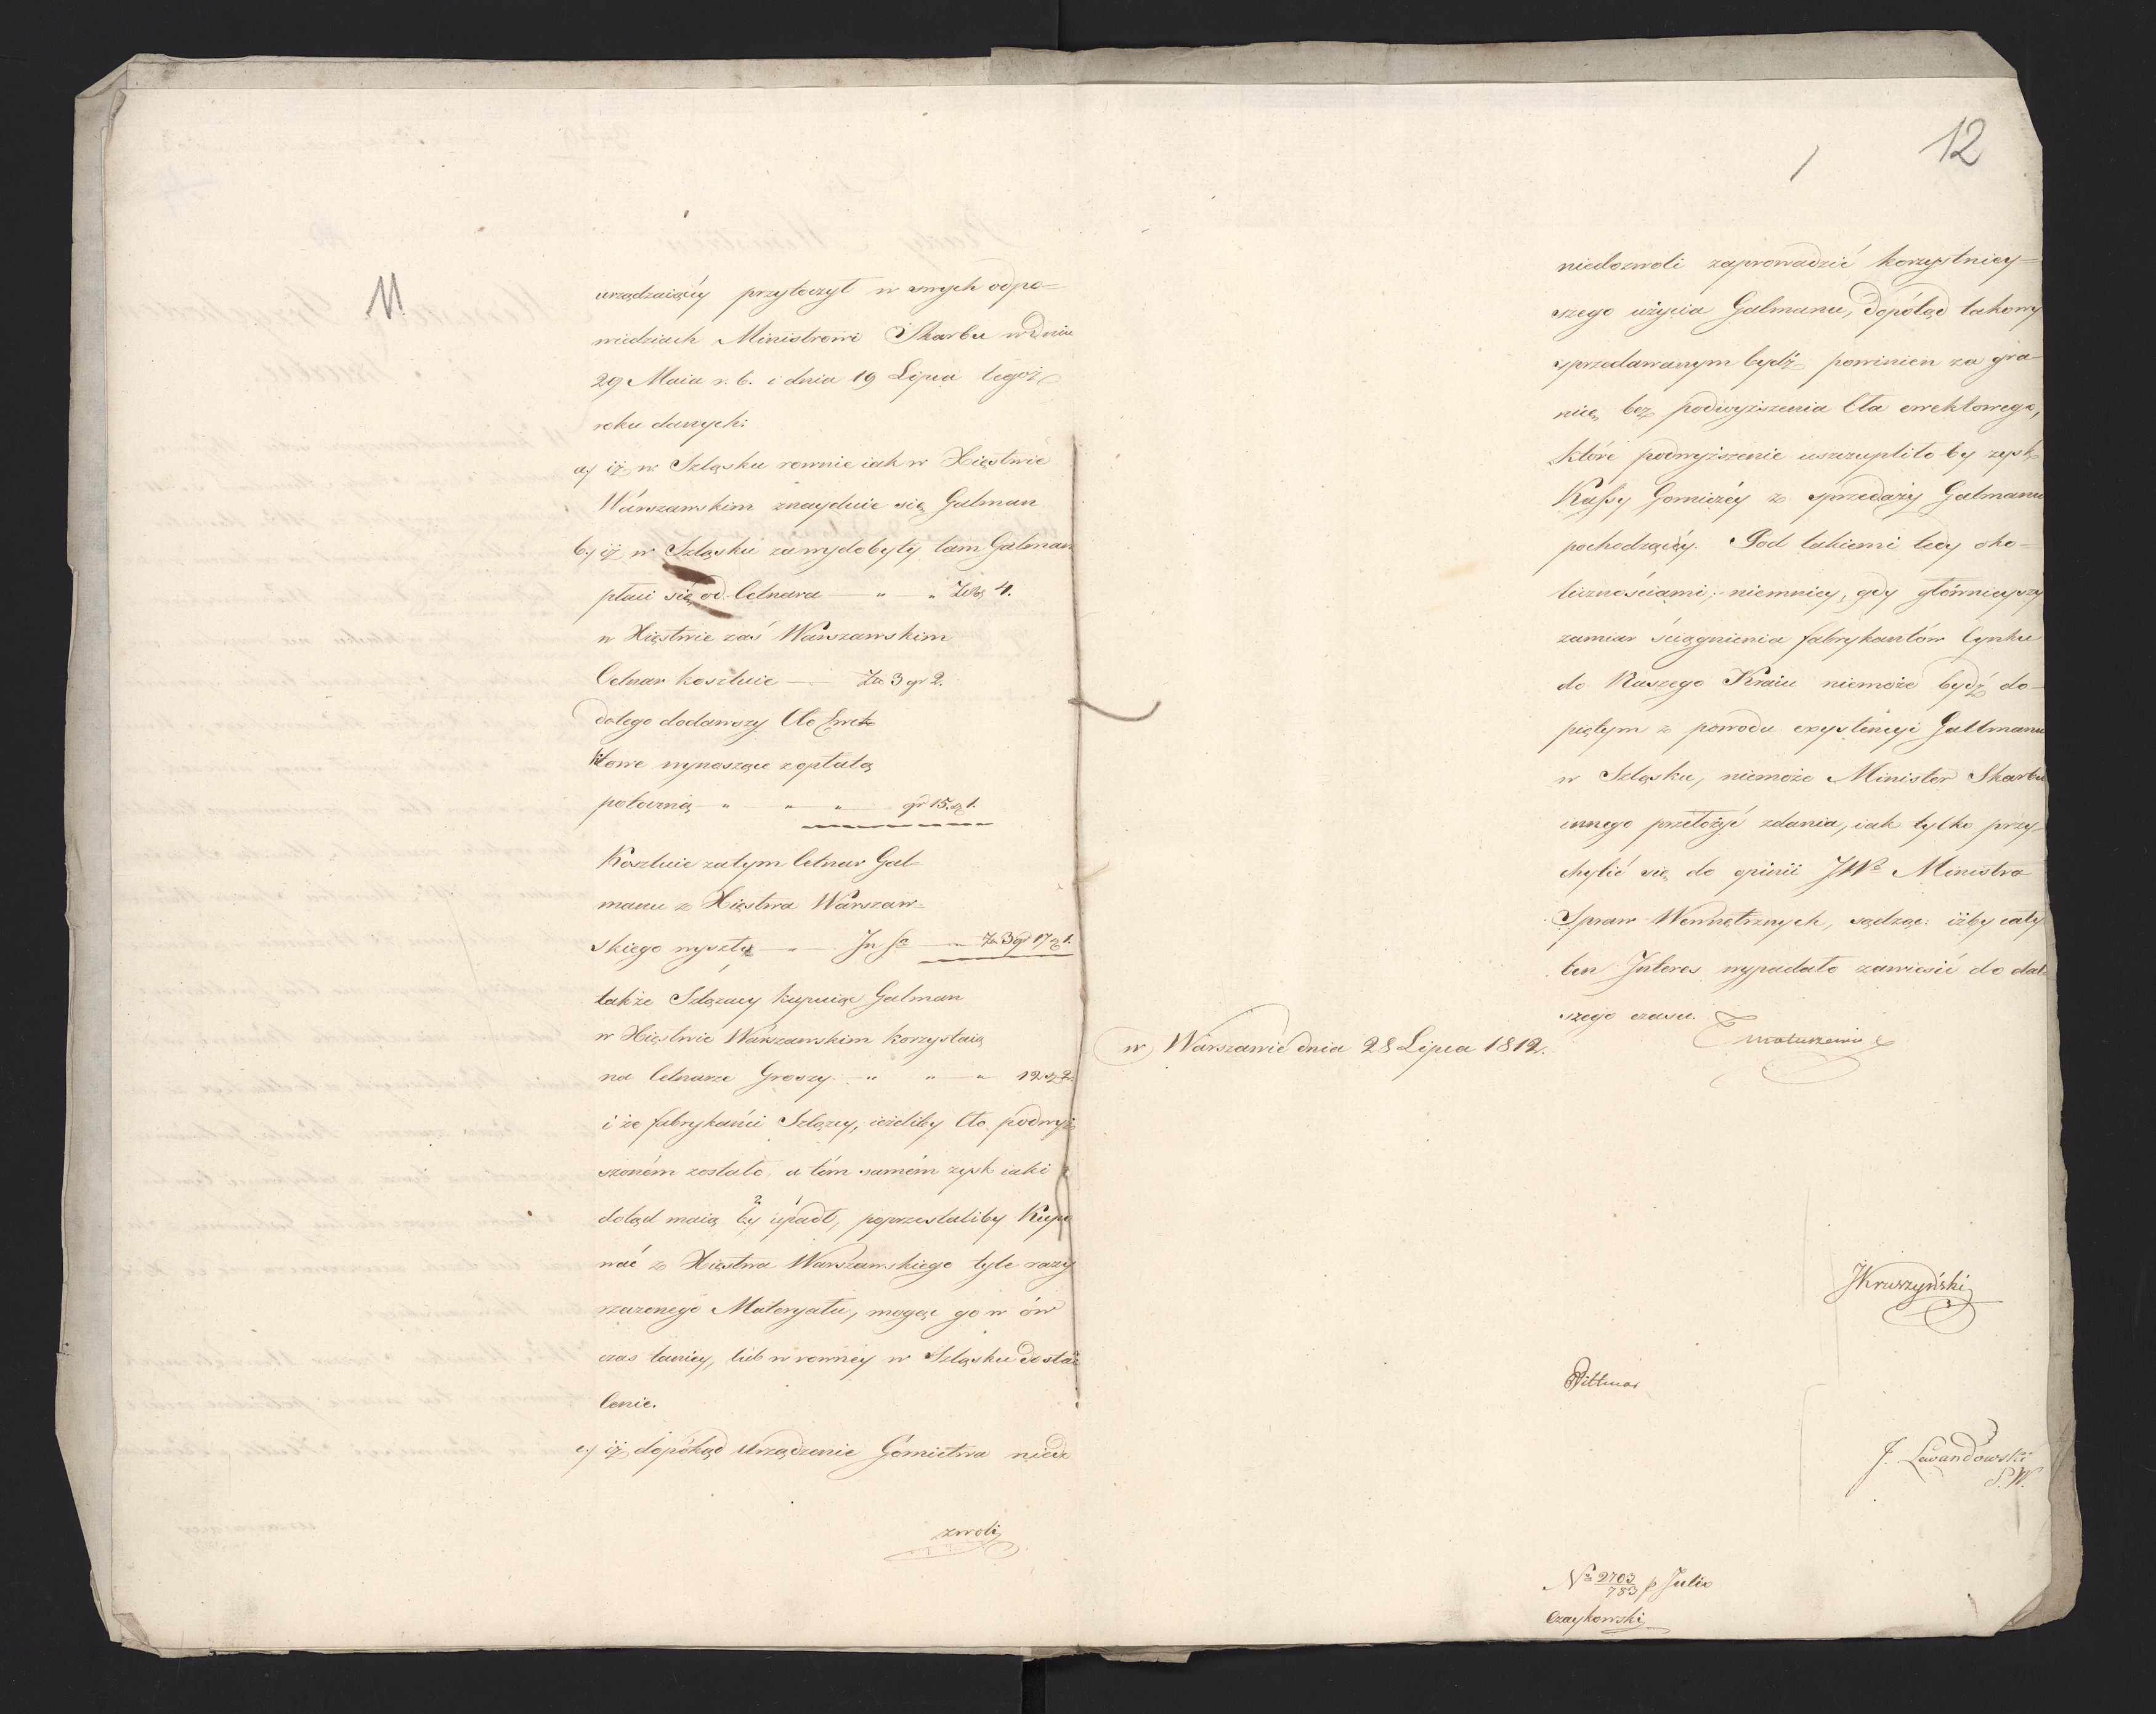 11
urządzaiący przytoczył w swych odpo=
wiedziach Ministrowi Skarbu w dniu
29 Maia r. b. i dnia 19 Lipca tegoż
roku danych:
a) iż w Szląsku rownie iak w Xięstwie
Warszawskim znayduie się Galman
b) iż w Szląsku za wydobyty tam Galman
płaci się od Cetnara — " — " Złł 4.
w Xięstwie zaś Warszawskim
Cetnar kosztuie — Złł 3 gr 2.
do tego dodawszy Cło Ewek
ktowe wynoszące z opłatą
poboczną — " — " — " — gr 15. sz 1.
Kosztuie zatym Cetnar Gal-
manu z Xięstwa Warszaw=
skiego wyszły — " — In Sa — Zł. 3 gr 17 sz 1.
także Szlązacy kupuiąc Galman
w Xięstwie Warszawskim korzystaią
na Cetnarze Groszy — " — " — " 12 sz 2.
i że fabrykańci Szląscy, ieżeliby Cło podwyż
szoném zostało, a tém samém zysk iaki
dotąd maią 2 by 1 upadł, poprzestaliby Kupo
wać z Xięstwa Warszawskiego tyle razy
rzeczonego Materyału, mogąc go w ów
czas taniey, lub w rowney w Szląsku dostać
Cenie.
c) iż dopókąd Urządzenie Górnictwa niedo
zwoli
12
niedozwoli zaprowadzić korzystniey=
szego użycia Galmanu, dopótąd takowy
sprzedawanym bydź powinien za gra
nicę bez podwyższenia Cła ewektowego,
które podwyższenie uszczupliło by zysk
Kassy Gorniczéy z sprzedaży Galmanu
pochodzącéy. Pod takiemi tedy oko=
licznościami; niemniey, gdy główniejszy
zamiar ściągnienia fabrykantów Cynku
do Naszego Kraiu niemoże bydź do-
piętym z powodu exystencyi Gallmanu
w Szląsku, niemoże Minister Skarbu
innego przełożyć zdania, iak tylko przy-
chylić się do opinii JWo Ministra
Spraw Wewnętrznych, sądząc: iżby cały
ten Interes wypadało zawiesić do dal-
szego czasu.
w Warszawie dnia 28 Lipca 1812.
JKruszyński
Dittmar
J. Lewandowski
S. W.
No 2703/783 p Julio
Czaykowski